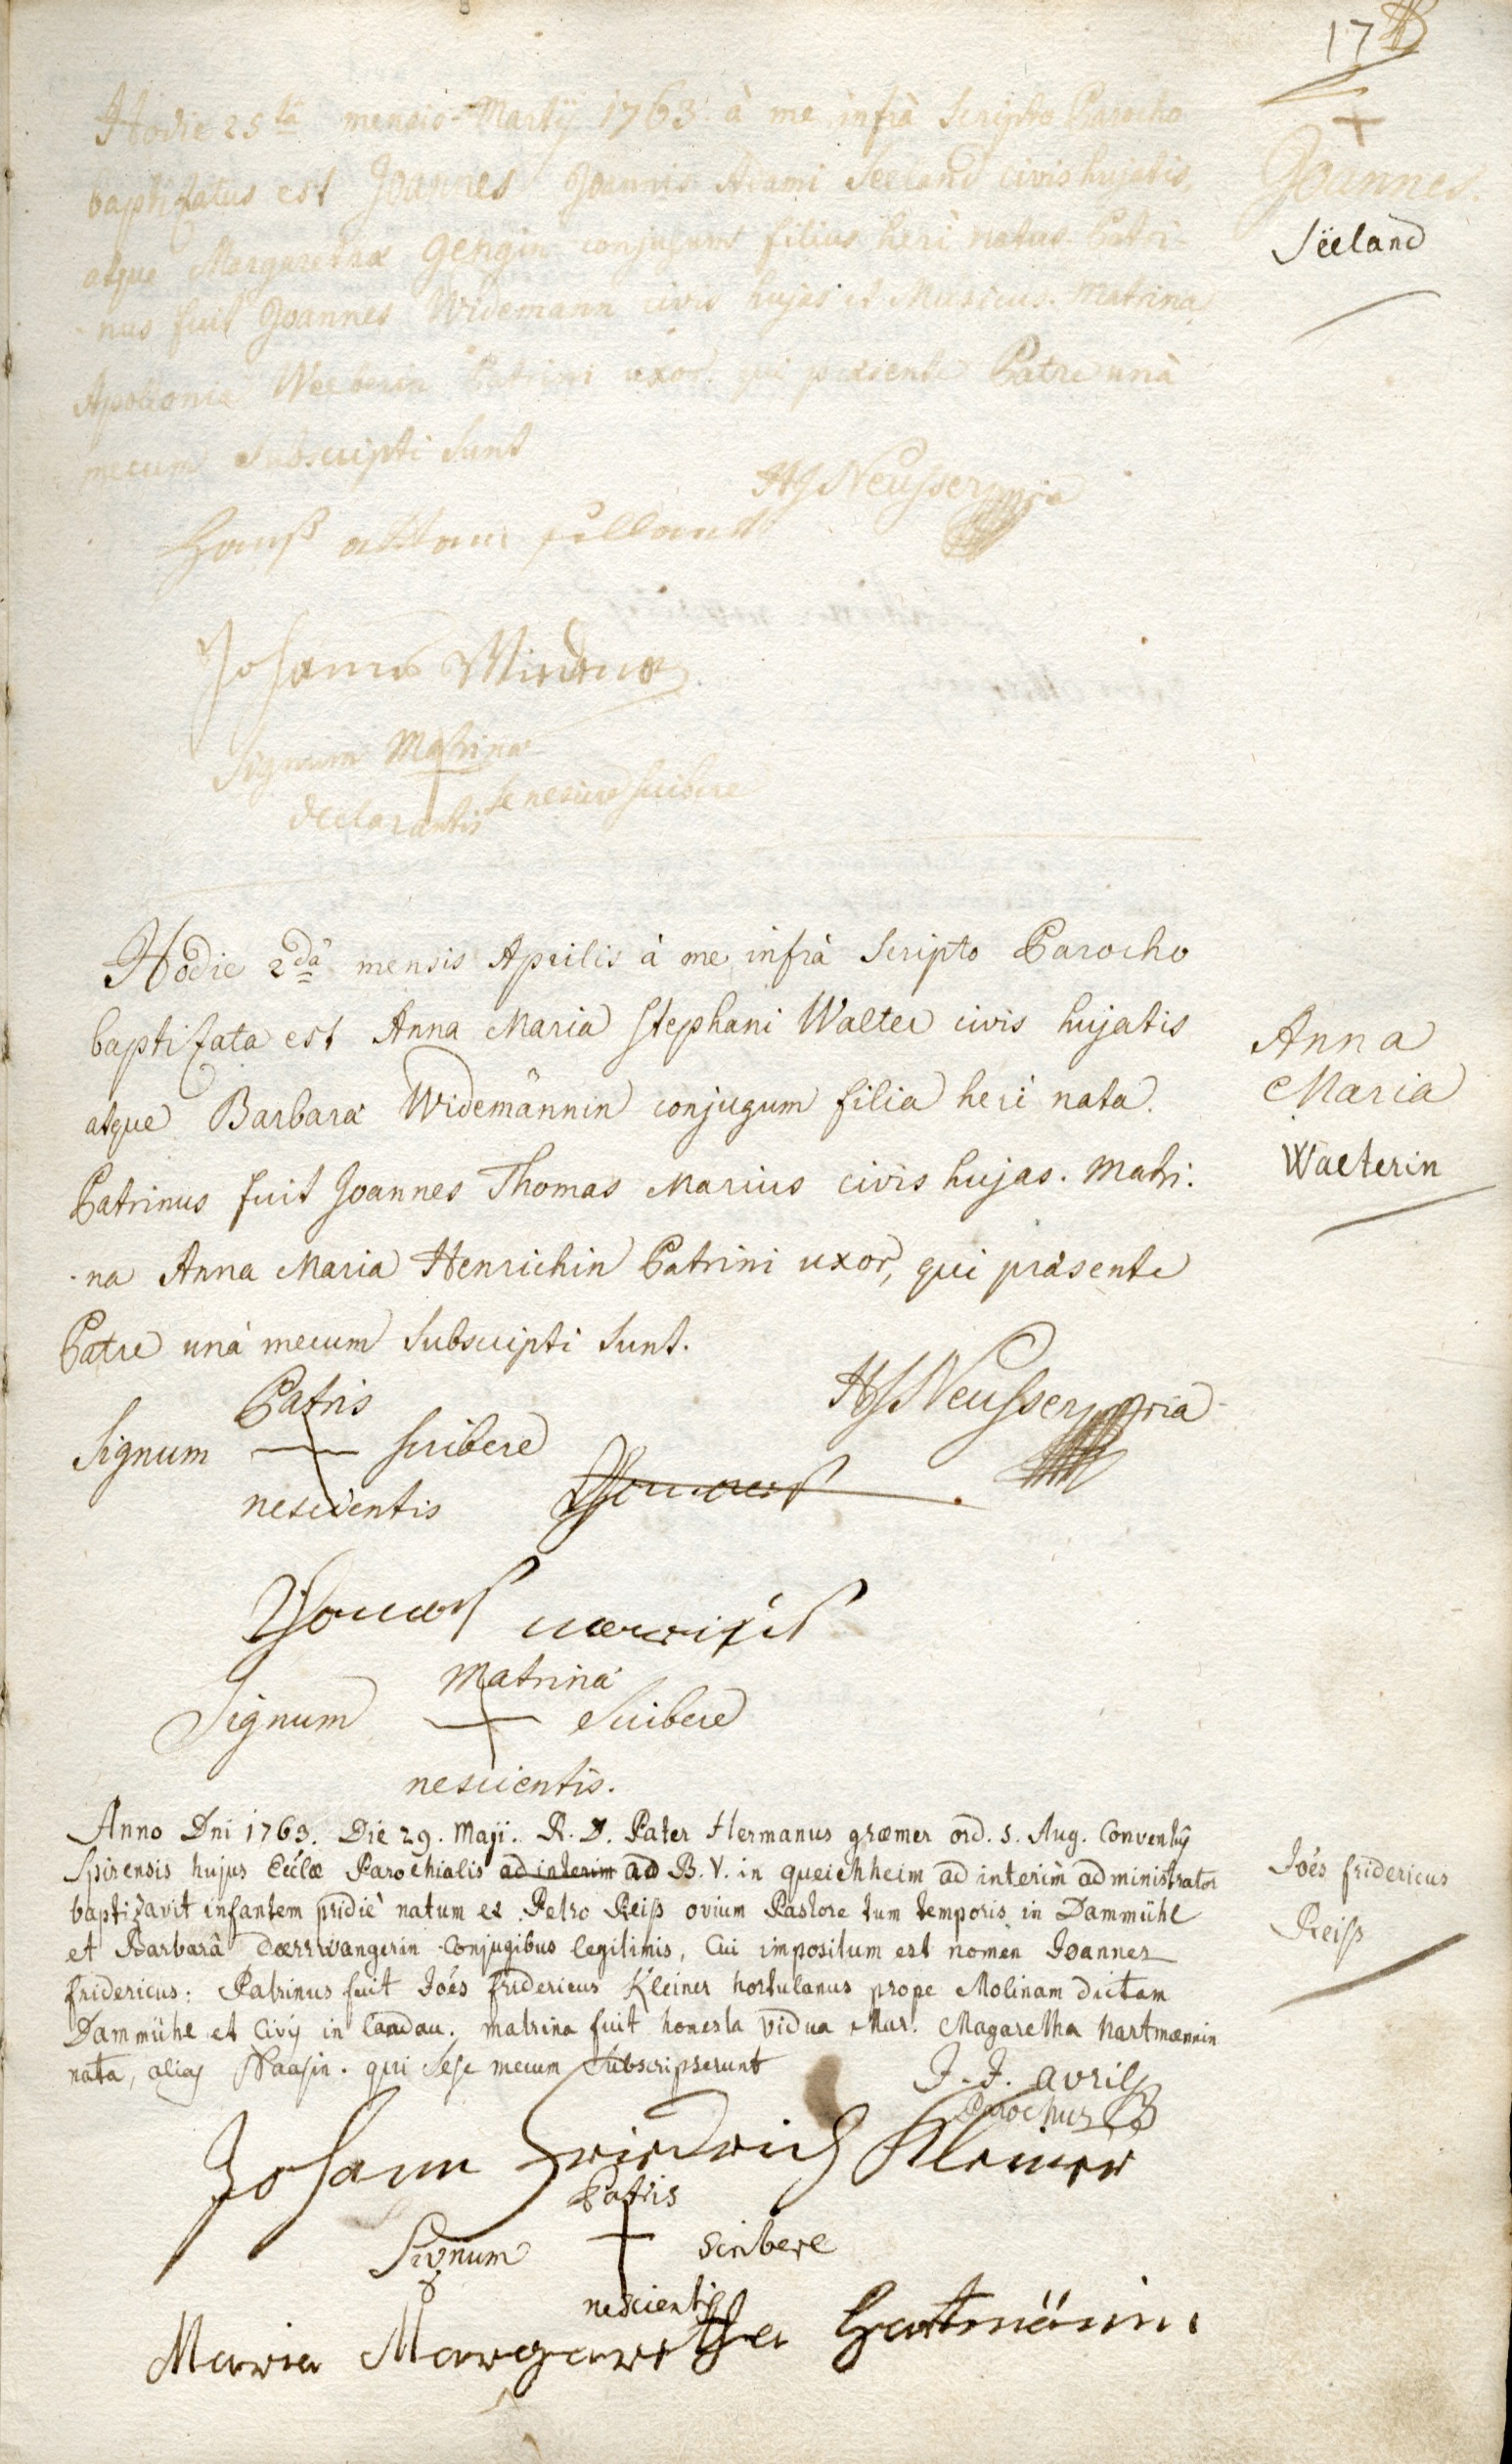 17
Hodie 25ta mensis Martÿ 1763. à me infrà Scripto Parocho
baptizatus est Joannes Joannis Adami Seeland civis hujatis,
atque Margarethæ Gengin conjugum filius heri natus. Patri-
-nus fuit Joannes Widemann civis hujas et Musicus. Matrina
Apollonia Weeberin Patrini uxor. qui præsente Patre unà
mecum Subscripti Sunt
Joannes.
Sëeland
HJNeusser mpria
Hanß attam
Johannes
Signum Matrinæ
declarantis se nescire scribere
Hodie 2dâ mensis Aprilis à me infrà Scripto Parocho
baptizata est Anna Maria Stephani Walter civis hujatis
atque Barbaræ Widemännin conjugum filia heri nata.
Patrinus fuit Joannes Thomas Marius civis hujas. Matri:
-na Anna Maria Henrichin Patrini uxor, qui præsente
Patre unà mecum Subscripti Sunt.
Anna
Maria
Walterin
HJNeusser mpria
Patris
Signum scribere
nescientis
Matrinæ
Signum Scibere
nescientis.
Anno Dni 1763. Die 29. Maji. R. D. Pater Hermanus græmer ord. s. Aug. Conventûs
Spirensis hujus Eclæ Parochialis ad interim ad B. V. in queichheim ad interim administrator
baptizavit infantem pridiè natum ex Petro Reiß ovium Pastore tum temporis in Dammühl
et Barbarâ Doerrwangerin Conjugibus legitimis, Cui impositum est nomen Joannes
fridericus: Patrinus fuit Joés fridericus Kleiner hortulanus prope Molinam dictam
Dammühl et Civis in Landau. matrina fuit honesta vidua Mar. Magaretha hartmænnin
nata, alias Haasin. qui Sese mecum Subscripserunt
Joés fridericus
Reiß
J. J. avril
Parochus
Johann Friedrich Kleiner
Patris
Signum scribere
nescientis
Maria Margaretha Hartmänin